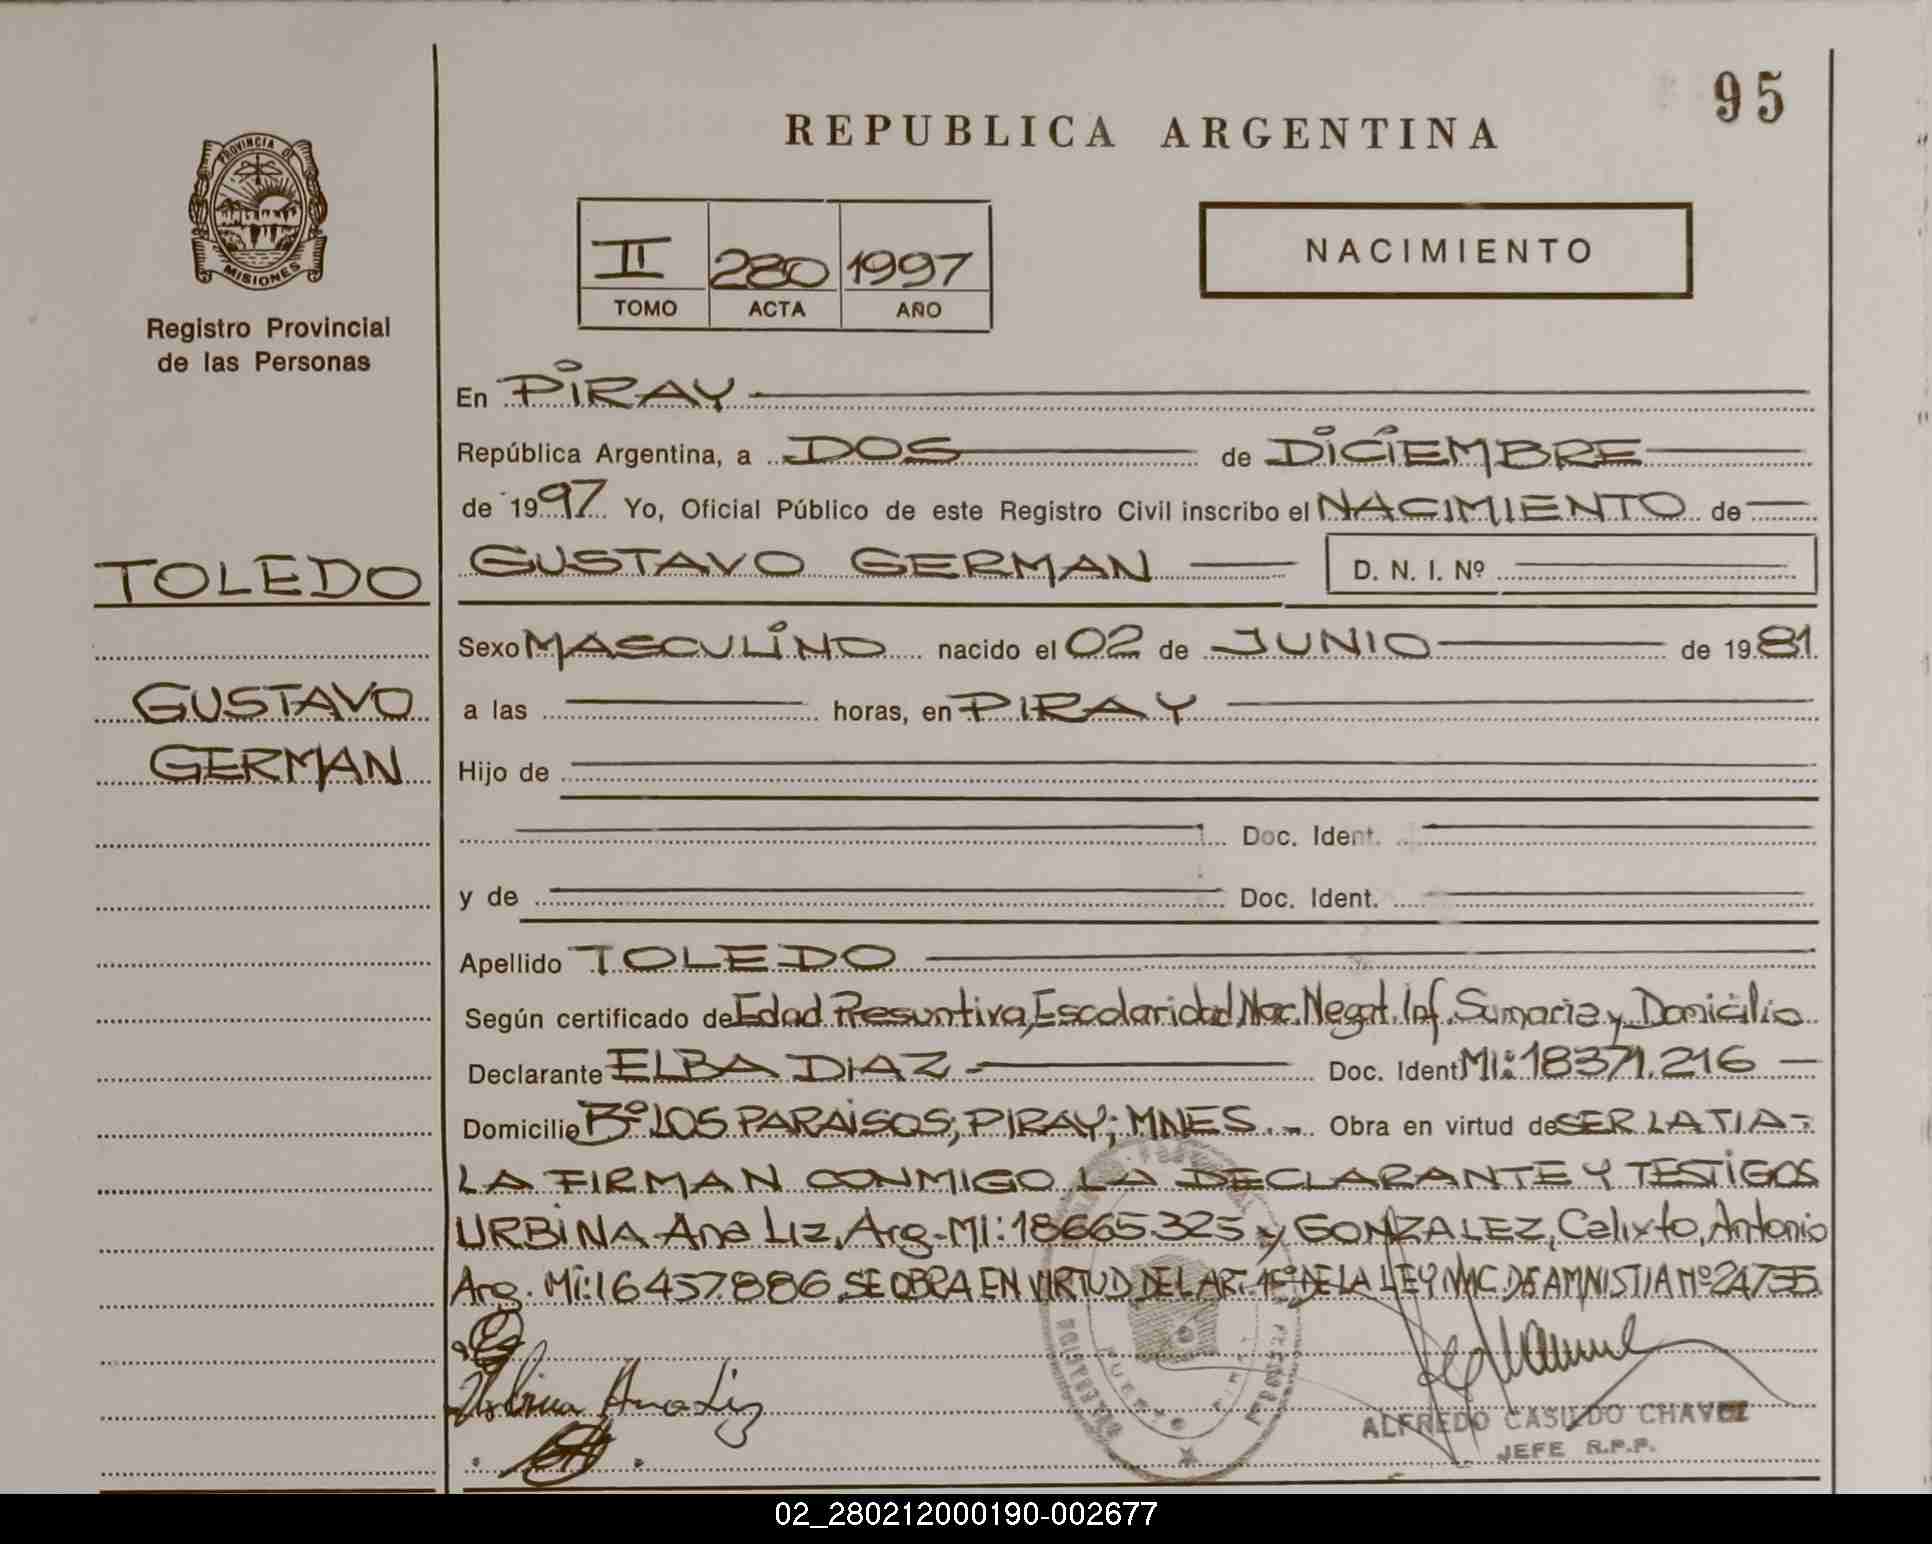 95
REPUBLICA ARGENTINA
PROVINCIA DE
MISIONES
Registro Provincial
de las Personas
II 280 1997
TOMO ACTA AÑO
NACIMIENTO
En PIRAY
República Argentina, a DOS de DICIEMBRE
de 1997 Yo, Oficial Público de este Registro Civil inscribo el NACIMIENTO de
TOLEDO
GUSTAVO GERMAN D. N. I. Nº
Sexo MASCULINO nacido el 02 de JUNIO de 1981
GUSTAVO
a las horas, en PIRAY
GERMAN
Hijo de
Doc. Ident.
y de Doc. Ident.
Apellido TOLEDO
Según certificado de Edad Presuntiva, Escolaridad, Nac. Negat. Inf. Sumaria y Domicilio
Declarante ELBA DIAZ Doc. Ident MI: 18371.216
Domicilio Bº LOS PARAISOS; PIRAY; MNES. Obra en virtud de SER LA TIA-
LA FIRMAN CONMIGO LA DECLARANTE Y TESTIGOS
URBINA Ana Liz, Arg. MI: 18665.325 y GONZALEZ, Celixto, Antonio
Arg. MI: 16457.886. SE OBRA EN VIRTUD DEL ART. 1º DE LA LEY NAC. DE AMNISTIA Nº 24755
Urbina Ana Liz
ALFREDO CASILDO CHAVEZ
JEFE R.P.P.
02_280212000190-002677